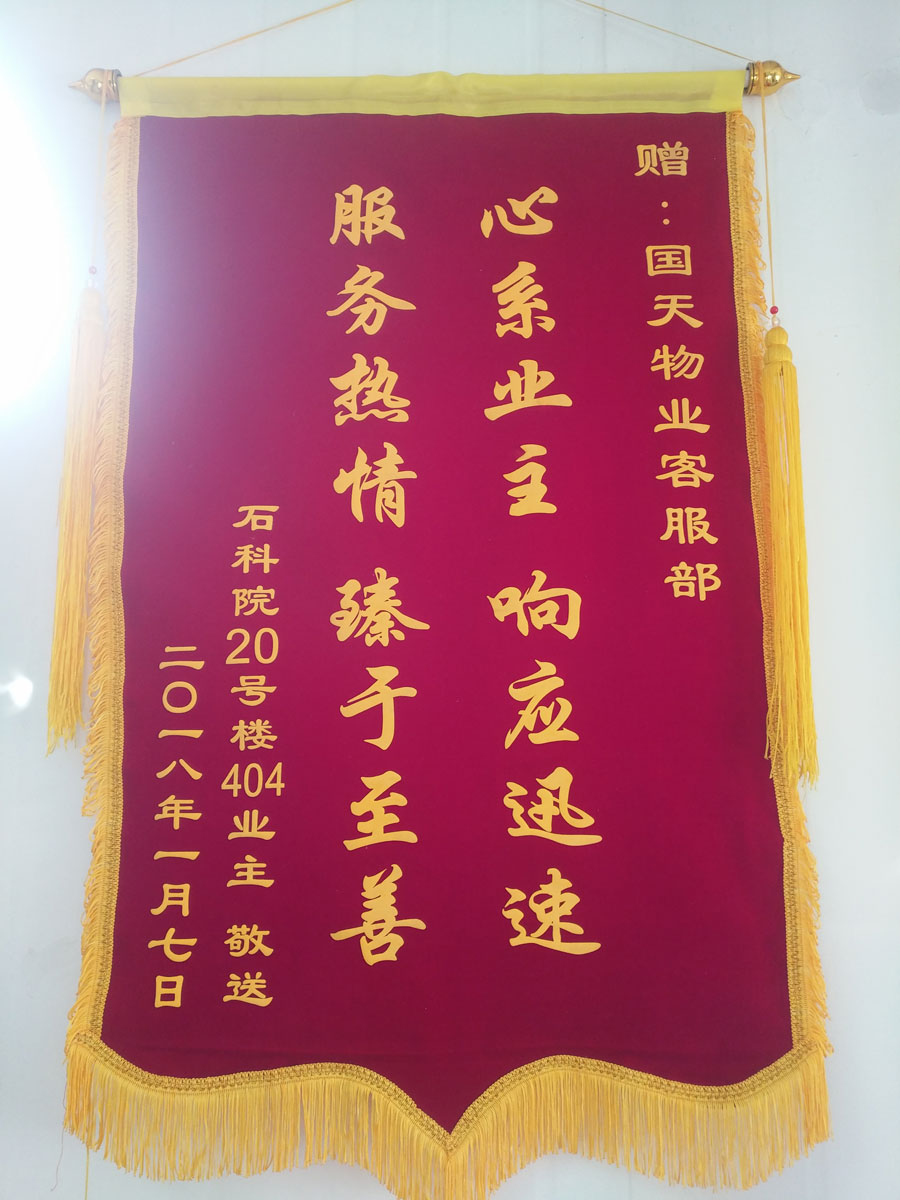 赠:国天物业客服部
心系业主 响应迅速
服务热情 臻于至善
石科院20号楼404业主 敬送
二〇一八年一月七日